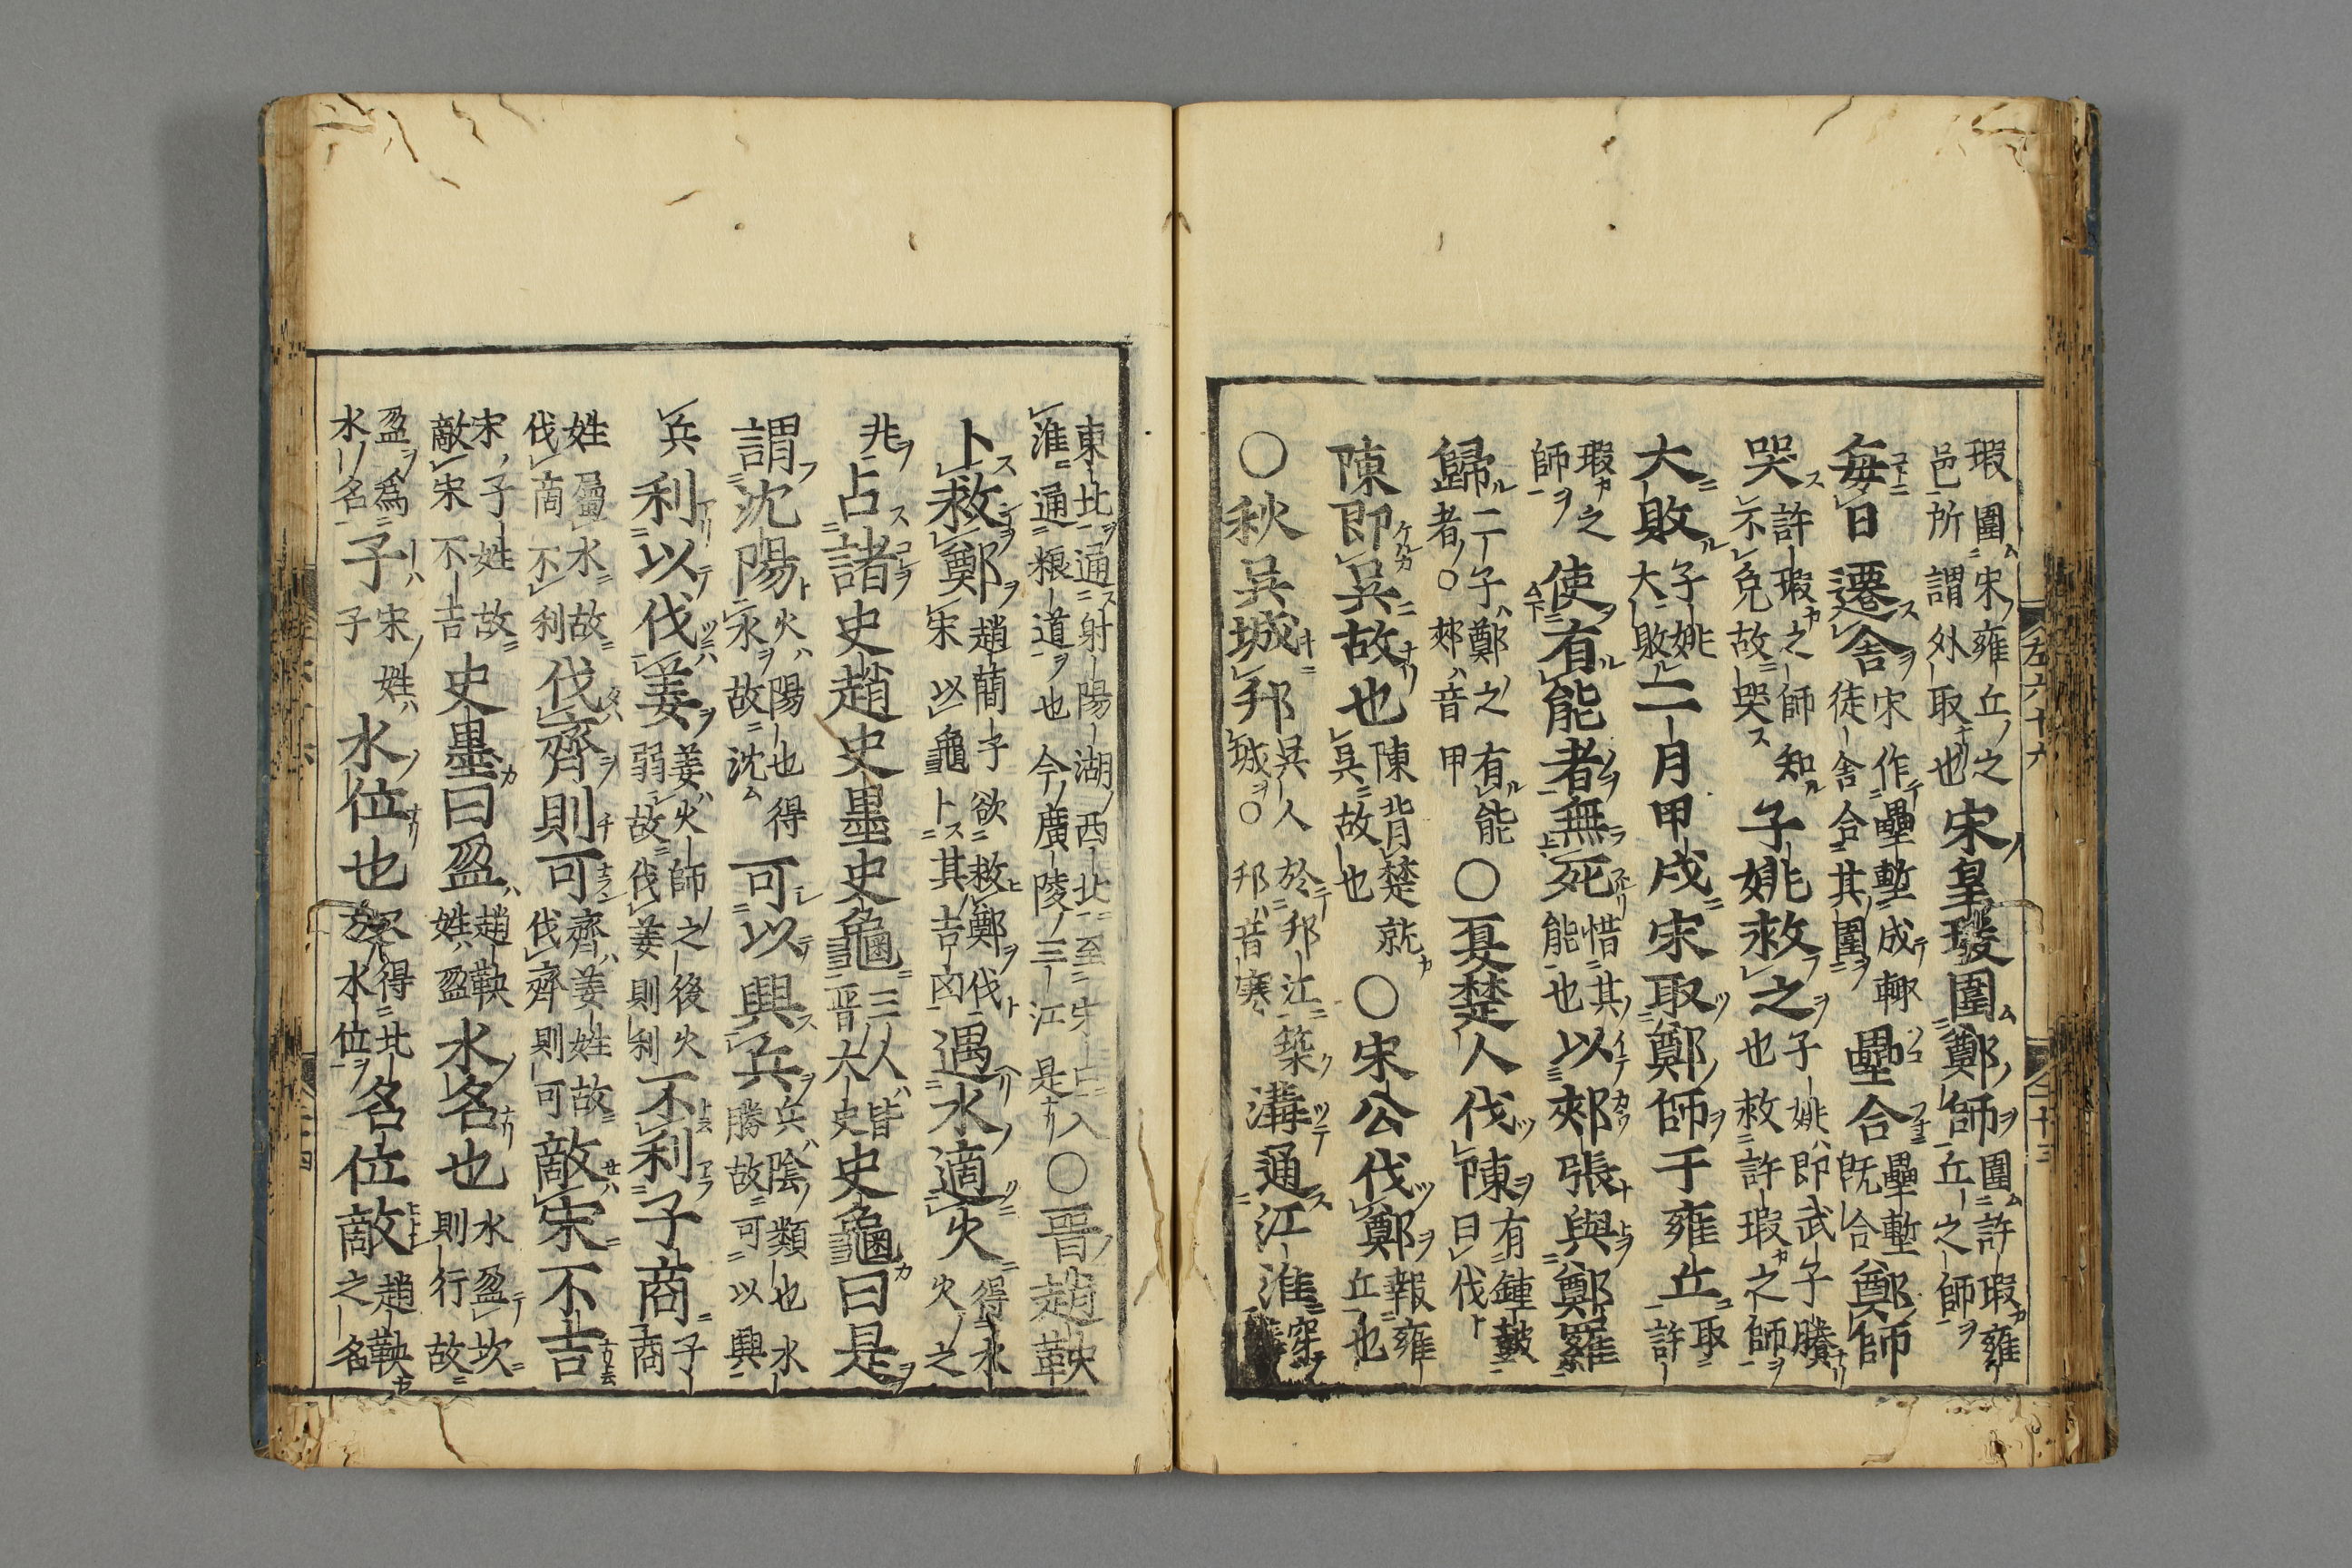 左六十六
二十三
瑕圍宋雍丘之邑所謂外取也宋皇瑗圍鄭師圍許瑕雍丘之師
每日遷舍宋作壘塹成輙徒舍合其圍壘合壘塹既合鄭師
哭許瑕之師知不免故哭子姚救之子姚即武子賸也救許瑕之師
大敗子姚大敗二月甲戌宋取鄭師于雍丘取許
瑕之師使有能者無死惜其能也以郟張與鄭羅
歸二子鄭之有能者○郟音甲○夏楚人伐陳有鍾皷曰伐
陳即吳故也陳背楚就吳故也○宋公伐鄭報雍丘也
○秋吳城邗吳人於邗江築城○邗音寒溝通江淮穿
東北通射陽湖西北至宋口入淮通粮道也今廣陵三江是○晉趙鞅
卜救鄭趙簡子欲救鄭伐宋以龜卜其吉凶遇水適火得水火之
兆占諸史趙史墨史龜三人皆晉大史史龜曰是
謂沈陽火陽也得水故沈可以興兵兵陰類也水勝故可以興
兵利以伐姜姜火師之後火弱故伐姜則利不利子商子商
姓屬水故伐商不利伐齊則可齊姜姓故伐齊則可敵宋不吉
宋子姓故敵宋不吉史墨曰盈趙鞅姓盈水名也水盈坎則行故
盈為水名子宋姓子水位也又得北方水位名位敵趙鞅之名